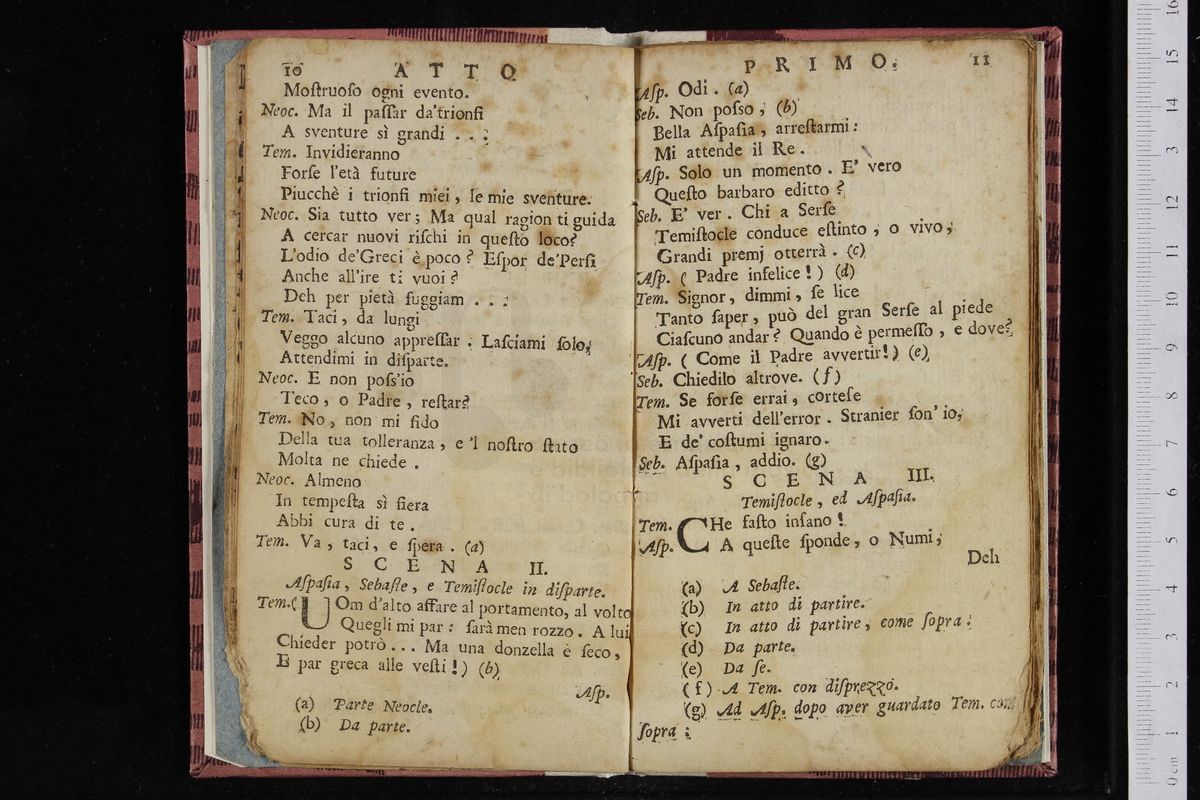 10 ATTO
Moſtruoſo ogni evento.
Neoc. Ma il paſſar da'trionfi
A sventure sì grandi . . .
Tem. Invidieranno
Forſe l'età future
Piucchè i trionfi miei, le mie sventure.
Neoc. Sia tutto ver; Ma qual ragion ti guida
A cercar nuovi riſchi in queſto loco?
L'odio de'Greci è poco? Eſpor de'Perſi
Anche all'ire ti vuoi?
Deh per pietà fuggiam . . .
Tem. Taci, da lungi
Veggo alcuno appreſſar. Laſciami ſolo,
Attendimi in diſparte.
Neoc. E non poſs'io
Teco, o Padre, reſtar?
Tem. No, non mi fido
Della tua tolleranza, e 'l noſtro ſtato
Molta ne chiede.
Neoc. Almeno
In tempeſta sì fiera
Abbi cura di te.
Tem. Va, taci, e ſpera. (a)
SCENA II.
Aſpaſia, Sebaſte, e Temiſtocle in diſparte.
Tem.( UOm d'alto affare al portamento, al volto
Quegli mi par: ſarà men rozzo. A lui
Chieder potrò... Ma una donzella è ſeco,
E par greca alle veſti!) (b)
Aſp.
(a) Parte Neocle.
(b) Da parte.
PRIMO. 11
Aſp. Odi. (a)
Seb. Non poſſo, (b)
Bella Aſpaſia, arreſtarmi:
Mi attende il Re.
Aſp. Solo un momento. E' vero
Queſto barbaro editto?
Seb. E' ver. Chi a Serſe
Temiſtocle conduce eſtinto, o vivo,
Grandi premj otterrà. (c)
Aſp. (Padre infelice!) (d)
Tem. Signor, dimmi, ſe lice
Tanto ſaper, può del gran Serſe al piede
Ciaſcuno andar? Quando è permeſſo, e dove?
Aſp. (Come il Padre avvertir!) (e)
Seb. Chiedilo altrove. (f)
Tem. Se forſe errai, corteſe
Mi avverti dell'error. Stranier ſon' io,
E de' coſtumi ignaro.
Seb. Aſpaſia, addio. (g)
SCENA III.
Temiſtocle, ed Aſpaſia.
Tem. CHe faſto inſano!
Aſp. A queſte ſponde, o Numi,
Deh
(a) A Sebaſte.
(b) In atto di partire.
(c) In atto di partire, come ſopra.
(d) Da parte.
(e) Da ſe.
(f) A Tem. con diſprezzo.
(g) Ad Aſp. dopo aver guardato Tem. com
ſopra.